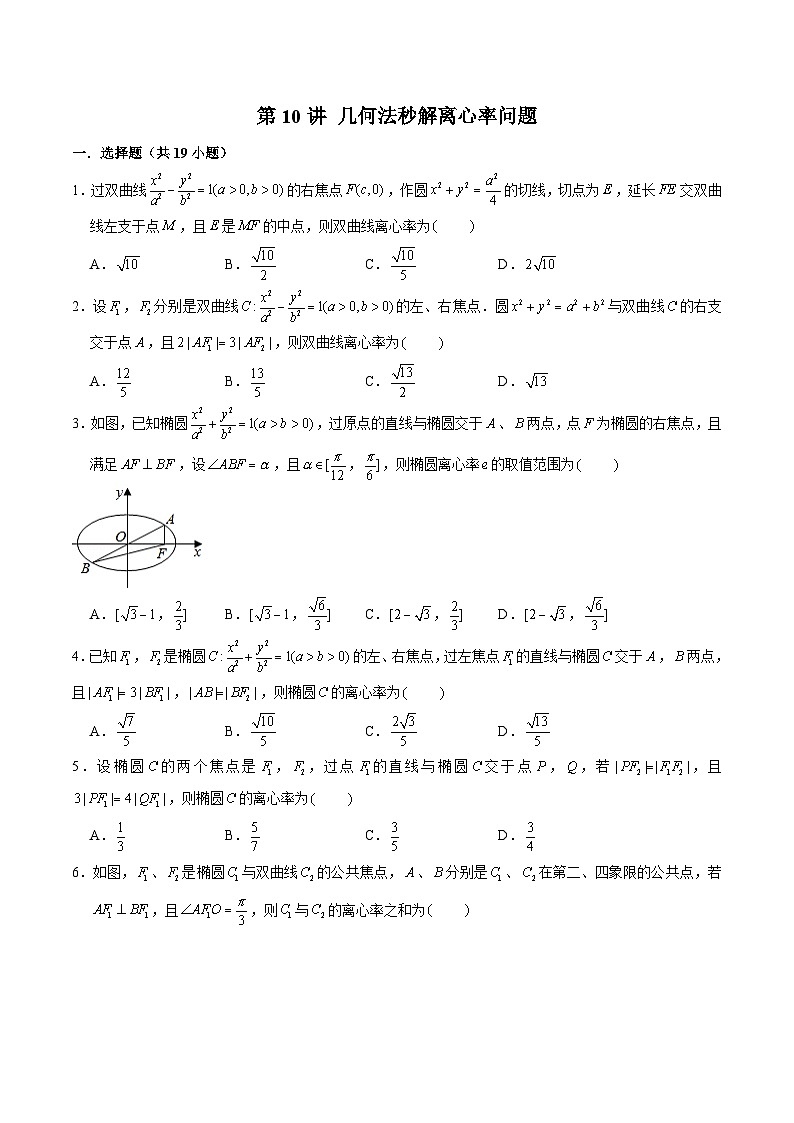 第 10 讲 几何法秒解离心率问题
一．选择题（共 19 小题）
1.过双曲线 x²/a² − y²/b² = 1(a > 0, b > 0) 的右焦点 F(c,0)，作圆 x² + y² = a²/4 的切线，切点为 E，延长 FE 交双曲
线左支于点 M，且 E 是 MF 的中点，则双曲线离心率为(　　)
A．√10　B．√10/2　C．√10/5　D．2√10
2．设 F₁，F₂ 分别是双曲线 C : x²/a² − y²/b² = 1(a > 0, b > 0) 的左、右焦点．圆 x² + y² = a² + b² 与双曲线 C 的右支
交于点 A，且 2|AF₁|= 3|AF₂|，则双曲线离心率为(　　)
A．12/5　B．13/5　C．√13/2　D．√13
3．如图，已知椭圆 x²/a² + y²/b² = 1(a > b > 0)，过原点的直线与椭圆交于 A、B 两点，点 F 为椭圆的右焦点，且
满足 AF ⊥ BF，设 ∠ABF = α，且 α ∈[π/12，π/6]，则椭圆离心率 e 的取值范围为(　　)
y
A
O
F
x
B
A．[√3 − 1，2/3]　B．[√3 − 1，√6/3]　C．[2 − √3，2/3]　D．[2 − √3，√6/3]
4．已知 F₁，F₂ 是椭圆 C : x²/a² + y²/b² = 1(a > b > 0) 的左、右焦点，过左焦点 F₁ 的直线与椭圆 C 交于 A，B 两点，
且 |AF₁|= 3|BF₁|，|AB|=|BF₂|，则椭圆 C 的离心率为(　　)
A．√7/5　B．√10/5　C．2√3/5　D．√13/5
5．设椭圆 C 的两个焦点是 F₁，F₂，过点 F₁ 的直线与椭圆 C 交于点 P，Q，若 |PF₂|=|F₁F₂|，且
3|PF₁|= 4|QF₁|，则椭圆 C 的离心率为(　　)
A．1/3　B．5/7　C．3/5　D．3/4
6．如图，F₁、F₂ 是椭圆 C₁ 与双曲线 C₂ 的公共焦点，A、B 分别是 C₁、C₂ 在第二、四象限的公共点，若
AF₁ ⊥ BF₁，且 ∠AF₁O = π/3，则 C₁ 与 C₂ 的离心率之和为(　　)